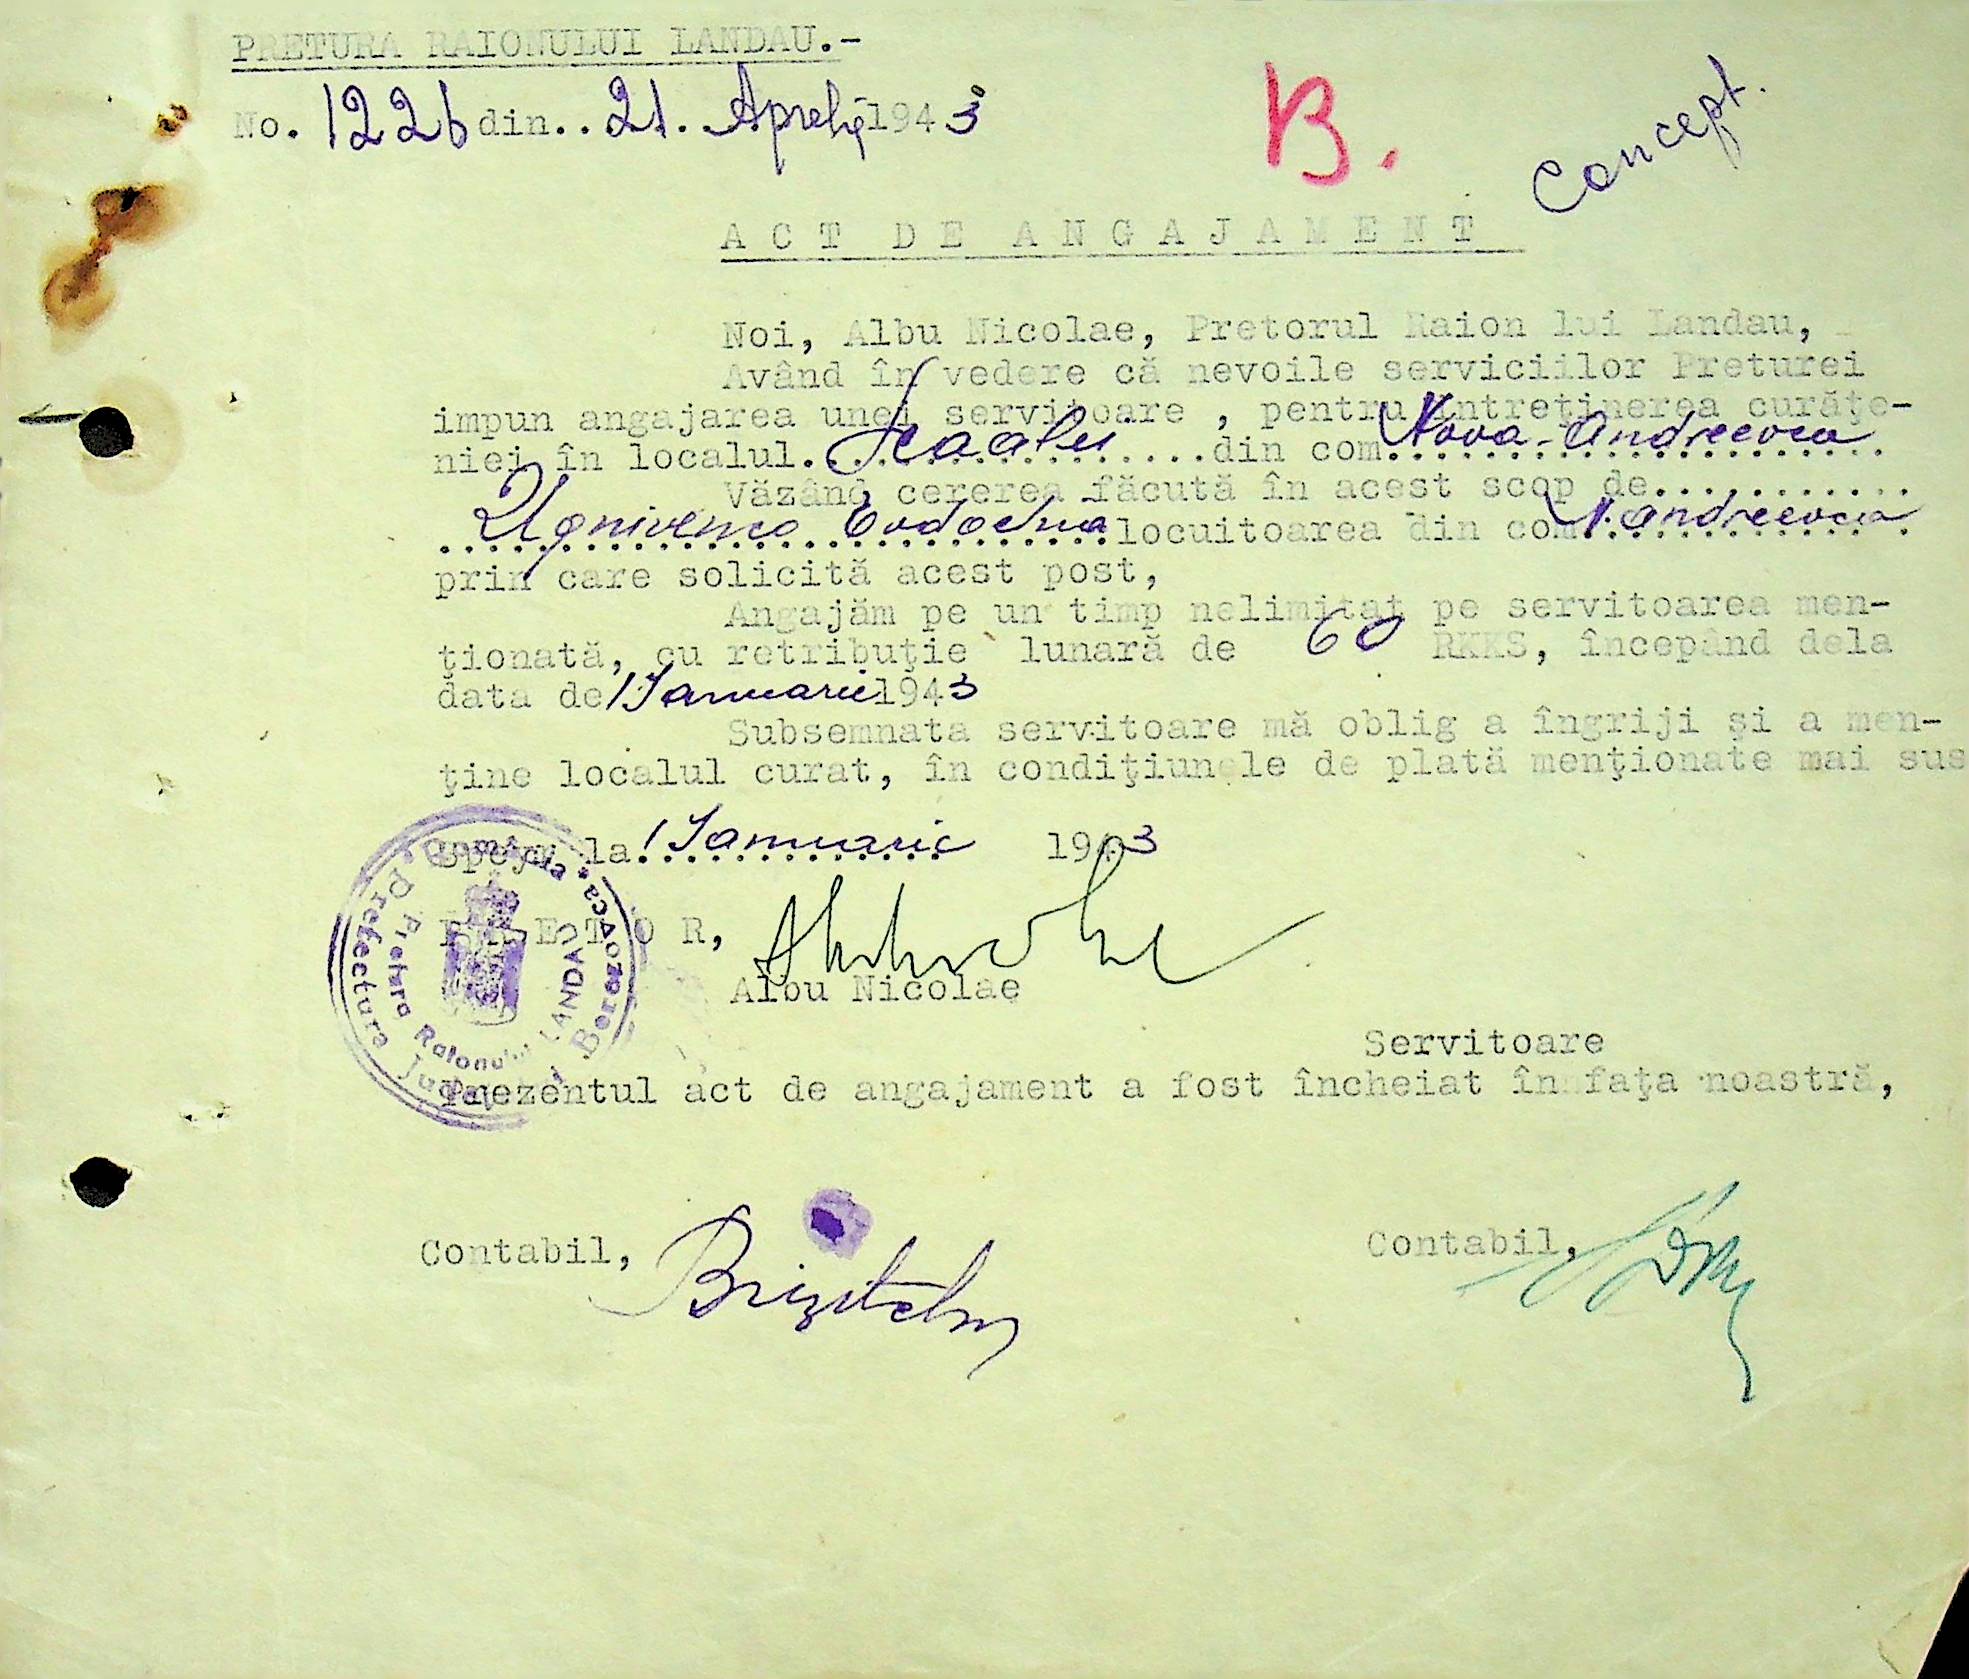 PRETURA RAIONULUI LANDAU.-
No. 1226 din.. 21. Aprilie 1943
B.
Concept.
ACT DE ANGAJAMENT
Noi, Albu Nicolae, Pretorul Raion lui Landau,
Având în vedere că nevoile serviciilor Preturei
impun angajarea unei servitoare , pentru întreținerea curățe-
niei în localul. Școalei din com. Nova-Andreevca
Văzând cererea făcută în acest scop de...........
Evdochia locuitoarea din com. N. Andreevca
prin care solicită acest post,
Angajăm pe un timp nelimitat pe servitoarea men-
ționată, cu retribuție lunară de 60 RKKS, începând dela
data de 1 Ianuarie 1943
Subsemnata servitoare mă oblig a îngriji și a men-
ține localul curat, în condițiunele de plată menționate mai sus
Speyer la. 1 Ianuarie 1943
P R E T O R,
Albu Nicolae
România
Prefectura Județului Berezovca
Pretura Raionului LANDAU
Servitoare
Prezentul act de angajament a fost încheiat în fața noastră,
Contabil,
Contabil,